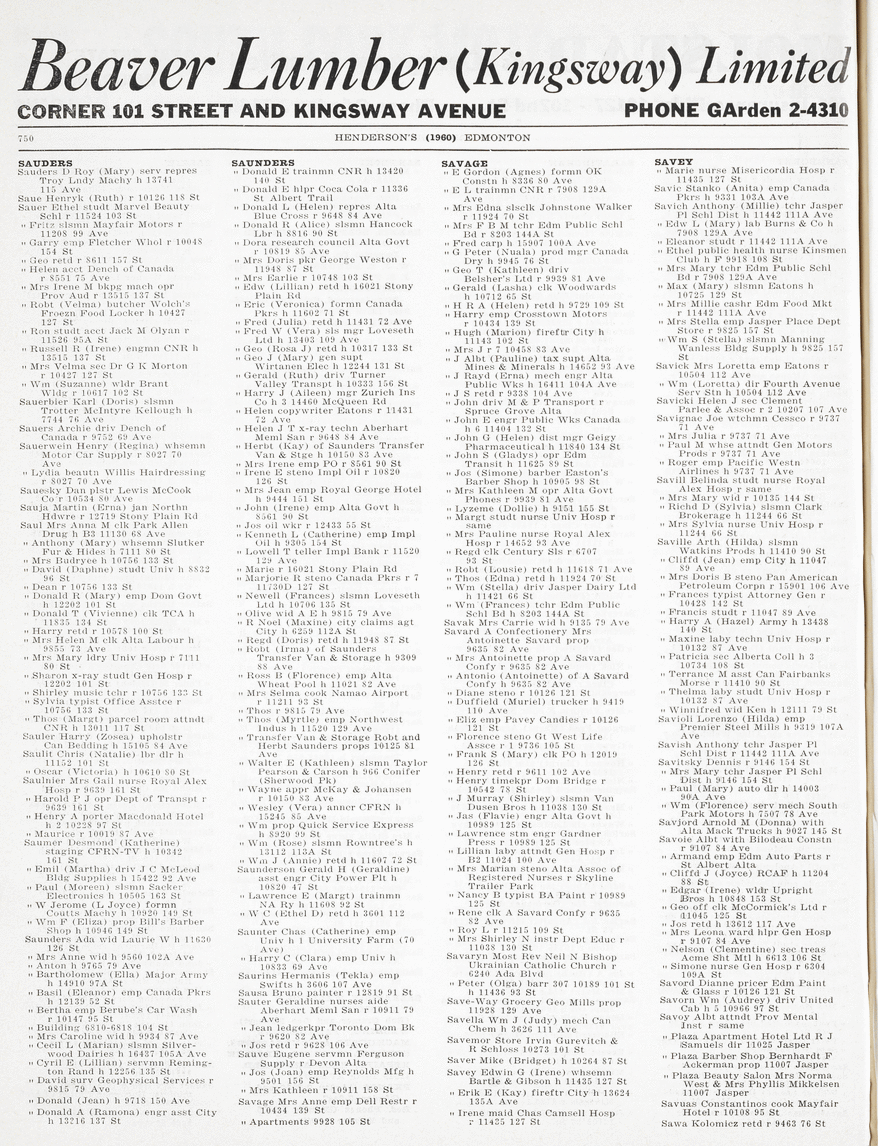 Beaver Lumber (Kingsway) Limited
CORNER 101 STREET AND KINGSWAY AVENUE PHONE GArden 2-4310
750 HENDERSON'S (1960) EDMONTON
SAUDERS
Sauders D Roy (Mary) serv repres
Troy Lndy Machy h 13741
115 Ave
Saue Henryk (Ruth) r 10126 118 St
Sauer Ethel studt Marvel Beauty
Schl r 11524 103 St
" Fritz slsmn Mayfair Motors r
11208 99 Ave
" Garry emp Fletcher Whol r 10048
154 St
" Geo retd r 8611 157 St
" Helen acct Dench of Canada
r 8551 75 Ave
" Mrs Irene M bkpg mach opr
Prov Aud r 13515 137 St
" Robt (Velma) butcher Wolch's
Froezn Food Locker h 10427
127 St
" Ron studt acct Jack M Olyan r
11526 95A St
" Russell R (Irene) engmn CNR h
13515 137 St
" Mrs Velma sec Dr G K Morton
r 10427 127 St
" Wm (Suzanne) wldr Brant
Wldg r 10617 102 St
Sauerbier Karl (Doris) slsmn
Trotter McIntyre Kellough h
7744 76 Ave
Sauers Archie driv Dench of
Canada r 9752 69 Ave
Sauerwein Henry (Regina) whsemn
Motor Car Supply r 8027 70
Ave
" Lydia beautn Willis Hairdressing
r 8027 70 Ave
Sauesky Dan plstr Lewis McCook
Co r 10534 80 Ave
Sauja Martin (Erna) jan Northn
Hdwre r 12719 Stony Plain Rd
Saul Mrs Anna M clk Park Allen
Drug h B3 11130 68 Ave
" Anthony (Mary) whsemn Slutker
Fur & Hides h 7111 80 St
" Mrs Budryee h 10756 133 St
" David (Daphne) studt Univ h 8832
96 St
" Dean r 10756 133 St
" Donald R (Mary) emp Dom Govt
h 12202 101 St
" Donald T (Vivienne) clk TCA h
11835 134 St
" Harry retd r 10578 100 St
" Mrs Helen M clk Alta Labour h
9855 73 Ave
" Mrs Mary ldry Univ Hosp r 7111
80 St
" Sharon x-ray studt Gen Hosp r
12202 101 St
" Shirley music tchr r 10756 133 St
" Sylvia typist Office Asstce r
10756 133 St
" Thos (Margt) parcel room attndt
CNR h 13011 117 St
Sauler Harry (Zosea) upholstr
Can Bedding h 15105 84 Ave
Saulit Chris (Natalie) lbr dlr h
11152 101 St
" Oscar (Victoria) h 10610 80 St
Saulnier Mrs Gail nurse Royal Alex
Hosp r 9639 161 St
" Harold P J opr Dept of Transpt r
9639 161 St
" Henry A porter Macdonald Hotel
h 2 10228 97 St
" Maurice r 10019 87 Ave
Saumer Desmond (Katherine)
staging CFRN-TV h 10342
161 St
" Emil (Martha) driv J C McLeod
Bldg Supplies h 15422 92 Ave
" Paul (Moreen) slsmn Sacker
Electronics h 10505 163 St
" W Jerome (L Joyce) formn
Coutts Machy h 10920 149 St
" Wm F (Eliza) prop Bill's Barber
Shop h 10946 149 St
Saunders Ada wid Laurie W h 11630
126 St
" Mrs Anne wid h 9560 102A Ave
" Anton h 9765 79 Ave
" Bartholomew (Ella) Major Army
h 14910 97A St
" Basil (Eleanor) emp Canada Pkrs
h 12139 52 St
" Bertha emp Berube's Car Wash
r 10147 95 St
" Building 6810-6818 104 St
" Mrs Caroline wid h 9934 87 Ave
" Cecil L (Marian) slsmn Silver-
wood Dairies h 16437 105A Ave
" Cyril E (Lillian) servmn Reming-
ton Rand h 12256 135 St
" David surv Geophysical Services r
9815 79 Ave
" Donald (Jean) h 9718 150 Ave
" Donald A (Ramona) engr asst City
h 13216 137 St
SAUNDERS
" Donald E trainmn CNR h 13420
140 St
" Donald E hlpr Coca Cola r 11336
St Albert Trail
" Donald L (Helen) repres Alta
Blue Cross r 9648 84 Ave
" Donald R (Alice) slsmn Hancock
Lbr h 8816 90 St
" Dora research council Alta Govt
r 10819 85 Ave
" Mrs Doris pkr George Weston r
11948 87 St
" Mrs Earlie r 10748 103 St
" Edw (Lillian) retd h 16021 Stony
Plain Rd
" Eric (Veronica) formn Canada
Pkrs h 11602 71 St
" Fred (Julia) retd h 11431 72 Ave
" Fred W (Vera) sls mgr Loveseth
Ltd h 13403 109 Ave
" Geo (Rosa J) retd h 10317 133 St
" Geo J (Mary) gen supt
Wirtanen Elec h 12244 131 St
" Gerald (Ruth) driv Turner
Valley Transpt h 10333 156 St
" Harry J (Aileen) mgr Zurich Ins
Co h 3 14460 McQueen Rd
" Helen copywriter Eatons r 11431
72 Ave
" Helen J T x-ray techn Aberhart
Meml San r 9648 84 Ave
" Herbt (Kay) of Saunders Transfer
Van & Stge h 10150 83 Ave
" Mrs Irene emp PO r 8561 90 St
" Irene E steno Impl Oil r 10820
126 St
" Mrs Jean emp Royal George Hotel
h 9444 151 St
" John (Irene) emp Alta Govt h
8561 90 St
" Jos oil wkr r 12433 55 St
" Kenneth L (Catherine) emp Impl
Oil h 9305 154 St
" Lowell T teller Impl Bank r 11520
129 Ave
" Marie r 16021 Stony Plain Rd
" Marjorie R steno Canada Pkrs r 7
11730D 127 St
" Newell (Frances) slsmn Loveseth
Ltd h 10706 135 St
" Olive wid A E h 9815 79 Ave
" R Noel (Maxine) city claims agt
City h 6259 112A St
" Regd (Doris) retd h 11948 87 St
" Robt (Irma) of Saunders
Transfer Van & Storage h 9309
88 Ave
" Ross B (Florence) emp Alta
Wheat Pool h 11021 82 Ave
" Mrs Selma cook Namao Airport
r 11211 93 St
" Thos r 9815 79 Ave
" Thos (Myrtle) emp Northwest
Indus h 11520 129 Ave
" Transfer Van & Storage Robt and
Herbt Saunders props 10125 81
Ave
" Walter E (Kathleen) slsmn Taylor
Pearson & Carson h 966 Conifer
(Sherwood Pk)
" Wayne appr McKay & Johansen
r 10150 83 Ave
" Wesley (Vera) anncr CFRN h
15245 85 Ave
" Wm prop Quick Service Express
h 8920 99 St
" Wm (Rose) slsmn Rowntree's h
13112 113A St
" Wm J (Annie) retd h 11607 72 St
Saunderson Gerald H (Geraldine)
asst engr City Power Plt h
10820 47 St
" Lawrence E (Margt) trainmn
NA Ry h 11608 92 St
" W C (Ethel D) retd h 3601 112
Ave
Saunter Chas (Catherine) emp
Univ h 1 University Farm (70
Ave)
" Harry C (Clara) emp Univ h
10833 69 Ave
Saurins Hermanis (Tekla) emp
Swifts h 3606 107 Ave
Sausa Bruno painter r 12819 91 St
Sauter Geraldine nurses aide
Aberhart Meml San r 10911 79
Ave
" Jean ledgerkpr Toronto Dom Bk
r 9620 82 Ave
" Jos retd r 9628 106 Ave
Sauve Eugene servmn Ferguson
Supply r Devon Alta
" Jos (Joan) emp Reynolds Mfg h
9501 156 St
" Mrs Kathleen r 10911 158 St
Savage Mrs Anne emp Dell Restr r
10434 139 St
" Apartments 9928 105 St
SAVAGE
" E Gordon (Agnes) formn OK
Constn h 8336 80 Ave
" E L trainmn CNR r 7908 129A
Ave
" Mrs Edna slsclk Johnstone Walker
r 11924 70 St
" Mrs F B M tchr Edm Public Schl
Bd r 8203 144A St
" Fred carp h 15907 100A Ave
" G Peter (Nuala) prod mgr Canada
Dry h 9945 76 St
" Geo T (Kathleen) driv
Belsher's Ltd r 9939 81 Ave
" Gerald (Lasha) clk Woodwards
h 10712 65 St
" H R A (Helen) retd h 9729 109 St
" Harry emp Crosstown Motors
r 10434 139 St
" Hugh (Marion) fireftr City h
11143 102 St
" Mrs J r 7 10458 83 Ave
" J Albt (Pauline) tax supt Alta
Mines & Minerals h 14652 93 Ave
" J Rayd (Erna) mech engr Alta
Public Wks h 16411 104A Ave
" J S retd r 9338 104 Ave
" John driv M & P Transport r
Spruce Grove Alta
" John E engr Public Wks Canada
h 6 11404 132 St
" John G (Helen) dist mgr Geigy
Pharmaceutical h 11840 134 St
" John S (Gladys) opr Edm
Transit h 11625 89 St
" Jos (Simone) barber Easton's
Barber Shop h 10905 98 St
" Mrs Kathleen M opr Alta Govt
Phones r 9939 81 Ave
" Lyzeme (Dollie) h 9151 155 St
" Margt studt nurse Univ Hosp r
same
" Mrs Pauline nurse Royal Alex
Hosp r 14652 93 Ave
" Regd clk Century Sls r 6707
93 St
" Robt (Lousie) retd h 11618 71 Ave
" Thos (Edna) retd h 11924 70 St
" Wm (Stella) driv Jasper Dairy Ltd
h 11421 66 St
" Wm (Frances) tchr Edm Public
Schl Bd h 8203 144A St
Savak Mrs Carrie wid h 9135 79 Ave
Savard A Confectionery Mrs
Antoinette Savard prop
9635 82 Ave
" Mrs Antoinette prop A Savard
Confy r 9635 82 Ave
" Antonio (Antoinette) of A Savard
Confy h 9635 82 Ave
" Diane steno r 10126 121 St
" Duffield (Muriel) trucker h 9419
110 Ave
" Eliz emp Pavey Candies r 10126
121 St
" Florence steno Gt West Life
Assce r 1 9736 105 St
" Frank S (Mary) clk PO h 12019
126 St
" Henry retd r 9611 102 Ave
" Henry timekpr Dom Bridge r
10542 78 St
" J Murray (Shirley) slsmn Van
Dusen Bros h 11038 130 St
" Jas (Flavie) engr Alta Govt h
10989 125 St
" Lawrence smn engr Gardner
Press r 10989 125 St
" Lillian laby attndt Gen Hosp r
B2 11024 100 Ave
" Mrs Marian steno Alta Assoc of
Registered Nurses r Skyline
Trailer Park
" Nancy B typist BA Paint r 10989
125 St
" Rene clk A Savard Confy r 9635
82 Ave
" Roy L r 11215 109 St
" Mrs Shirley N instr Dept Educ r
11038 130 St
Savaryn Most Rev Neil N Bishop
Ukrainian Catholic Church r
6240 Ada Blvd
" Peter (Olga) barr 307 10189 101 St
h 11436 93 St
Save-Way Grocery Geo Mills prop
11928 129 Ave
Savella Wm J (Judy) mech Can
Chem h 3626 111 Ave
Savemor Store Irvin Gurevitch &
R Schloss 10273 101 St
Saver Mike (Bridget) h 10264 87 St
Savey Edwin G (Irene) whsemn
Bartle & Gibson h 11435 127 St
" Erik E (Kay) fireftr City h 13624
135A Ave
" Irene maid Chas Camsell Hosp
r 11435 127 St
SAVEY
" Marie nurse Misericordia Hosp r
11435 127 St
Savic Stanko (Anita) emp Canada
Pkrs h 9331 103A Ave
Savich Anthony (Millie) tchr Jasper
Pl Schl Dist h 11442 111A Ave
" Edw L (Mary) lab Burns & Co h
7908 129A Ave
" Eleanor studt r 11442 111A Ave
" Ethel public health nurse Kinsmen
Club h F 9918 108 St
" Mrs Mary tchr Edm Public Schl
Bd r 7908 129A Ave
" Max (Mary) slsmn Eatons h
10725 129 St
" Mrs Millie cashr Edm Food Mkt
r 11442 111A Ave
" Mrs Stella emp Jasper Place Dept
Store r 9825 157 St
" Wm S (Stella) slsmn Manning
Wanless Bldg Supply h 9825 157
St
Savick Mrs Loretta emp Eatons r
10504 112 Ave
" Wm (Loretta) dir Fourth Avenue
Serv Stn h 10504 112 Ave
Savicki Helen J sec Clement
Parlee & Assoc r 2 10207 107 Ave
Savignac Joe wtchmn Cessco r 9737
71 Ave
" Mrs Julia r 9737 71 Ave
" Paul M whse attndt Gen Motors
Prods r 9737 71 Ave
" Roger emp Pacific Westn
Airlines h 9737 71 Ave
Savill Belinda studt nurse Royal
Alex Hosp r same
" Mrs Mary wid r 10135 144 St
" Richd D (Sylvia) slsmn Clark
Brokerage h 11244 66 St
" Mrs Sylvia nurse Univ Hosp r
11244 66 St
Saville Arth (Hilda) slsmn
Watkins Prods h 11410 90 St
" Cliffd (Jean) emp City h 11047
89 Ave
" Mrs Doris B steno Pan American
Petroleum Corpn r 15901 106 Ave
" Frances typist Attorney Gen r
10428 142 St
" Francis studt r 11047 89 Ave
" Harry A (Hazel) Army h 13438
140 St
" Maxine laby techn Univ Hosp r
10132 87 Ave
" Patricia sec Alberta Coll h 3
10734 108 St
" Terrance M asst Can Fairbanks
Morse r 11410 90 St
" Thelma laby studt Univ Hosp r
10132 87 Ave
" Winnifred wid Ken h 12111 79 St
Savioli Lorenzo (Hilda) emp
Premier Steel Mills h 9319 107A
Ave
Savish Anthony tchr Jasper Pl
Schl Dist r 11442 111A Ave
Savitsky Dennis r 9146 154 St
" Mrs Mary tchr Jasper Pl Schl
Dist h 9146 154 St
" Paul (Mary) auto dlr h 14003
90A Ave
" Wm (Florence) serv mech South
Park Motors h 7507 78 Ave
Savjord Arnold M (Donna) with
Alta Mack Trucks h 9027 145 St
Savoie Albt with Bilodeau Constn
r 9107 84 Ave
" Armand emp Edm Auto Parts r
St Albert Alta
" Cliffd J (Joyce) RCAF h 11204
88 St
" Edgar (Irene) wldr Upright
Bros h 10848 153 St
" Geo off clk McCormick's Ltd r
11045 125 St
" Jos retd h 13612 117 Ave
" Mrs Leona ward hlpr Gen Hosp
r 9107 84 Ave
" Nelson (Clementine) sec treas
Acme Sht Mtl h 6613 106 St
" Simone nurse Gen Hosp r 6304
109A St
Savord Dianne pricer Edm Paint
& Glass r 10126 121 St
Savorn Wm (Audrey) driv United
Cab h 5 10966 97 St
Savoy Alby attndt Prov Mental
Inst r same
" Plaza Apartment Hotel Ltd R J
Samuels dir 11025 Jasper
" Plaza Barber Shop Bernhardt F
Ackerman prop 11007 Jasper
" Plaza Beauty Salon Mrs Norma
West & Mrs Phyllis Mikkelsen
11007 Jasper
Savuas Constantinos cook Mayfair
Hotel r 10108 95 St
Sawa Kolomicz retd r 9463 76 St